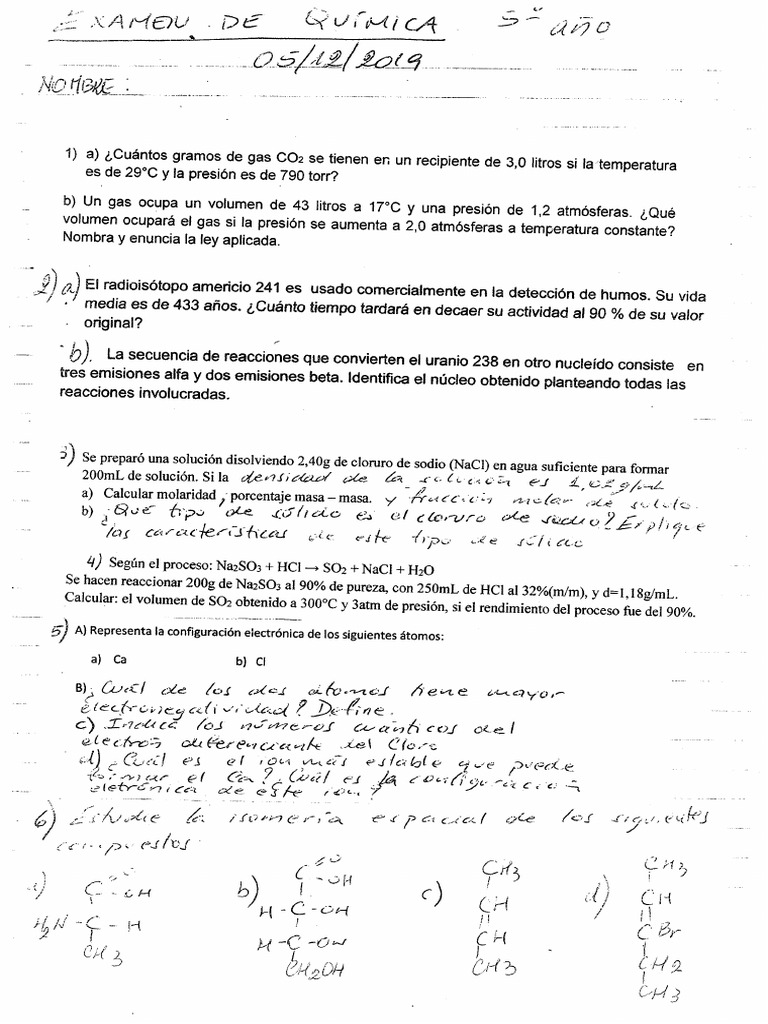 EXAMEN DE QUÍMICA 5º año
05/12/2019
NOMBRE:
1) a) ¿Cuántos gramos de gas CO₂ se tienen en un recipiente de 3,0 litros si la temperatura
es de 29°C y la presión es de 790 torr?
b) Un gas ocupa un volumen de 43 litros a 17°C y una presión de 1,2 atmósferas. ¿Qué
volumen ocupará el gas si la presión se aumenta a 2,0 atmósferas a temperatura constante?
Nombra y enuncia la ley aplicada.
2) a) El radioisótopo americio 241 es usado comercialmente en la detección de humos. Su vida
media es de 433 años. ¿Cuánto tiempo tardará en decaer su actividad al 90 % de su valor
original?
b). La secuencia de reacciones que convierten el uranio 238 en otro nucleído consiste en
tres emisiones alfa y dos emisiones beta. Identifica el núcleo obtenido planteando todas las
reacciones involucradas.
3) Se preparó una solución disolviendo 2,40g de cloruro de sodio (NaCl) en agua suficiente para formar
200mL de solución. Si la densidad de la solución es 1,02g/mL
a) Calcular molaridad, porcentaje masa – masa. y fracción molar de soluto.
b) ¿Qué tipo de sólido es el cloruro de sodio? Explique
las características de este tipo de sólido
4) Según el proceso: Na₂SO₃ + HCl → SO₂ + NaCl + H₂O
Se hacen reaccionar 200g de Na₂SO₃ al 90% de pureza, con 250mL de HCl al 32%(m/m), y d=1,18g/mL.
Calcular: el volumen de SO₂ obtenido a 300°C y 3atm de presión, si el rendimiento del proceso fue del 90%.
5) A) Representa la configuración electrónica de los siguientes átomos:
a) Ca b) Cl
B) ¿Cuál de los dos átomos tiene mayor
electronegatividad? Define.
c) Indica los números cuánticos del
electrón diferenciante del Cloro
d) ¿Cuál es el ion más estable que puede
formar el Ca? ¿Cuál es la configuración
eletrónica de este ion?
6) Estudie la isomería espacial de los siguientes
compuestos:
a) b) c) d)
C =O -OH C =O -OH CH3 CH3
H2N - C - H H-C-OH CH CH
CH3 H-C-OH CH C Br
CH2OH CH3 CH2
CH3